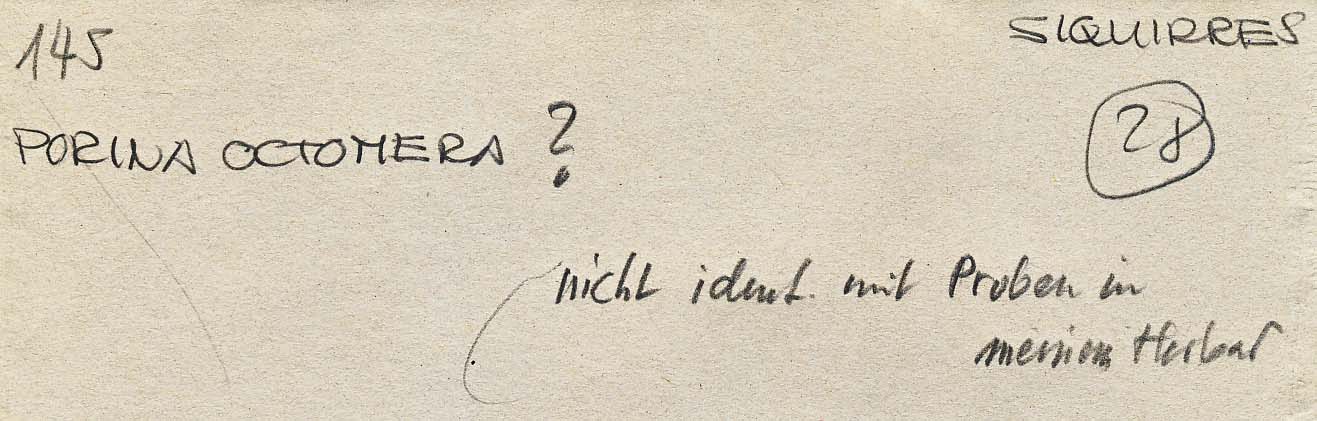 145
SIQUIRRES
28
PORINA OCTOMERA ?
nicht ident. mit Proben in
meinem Herbar